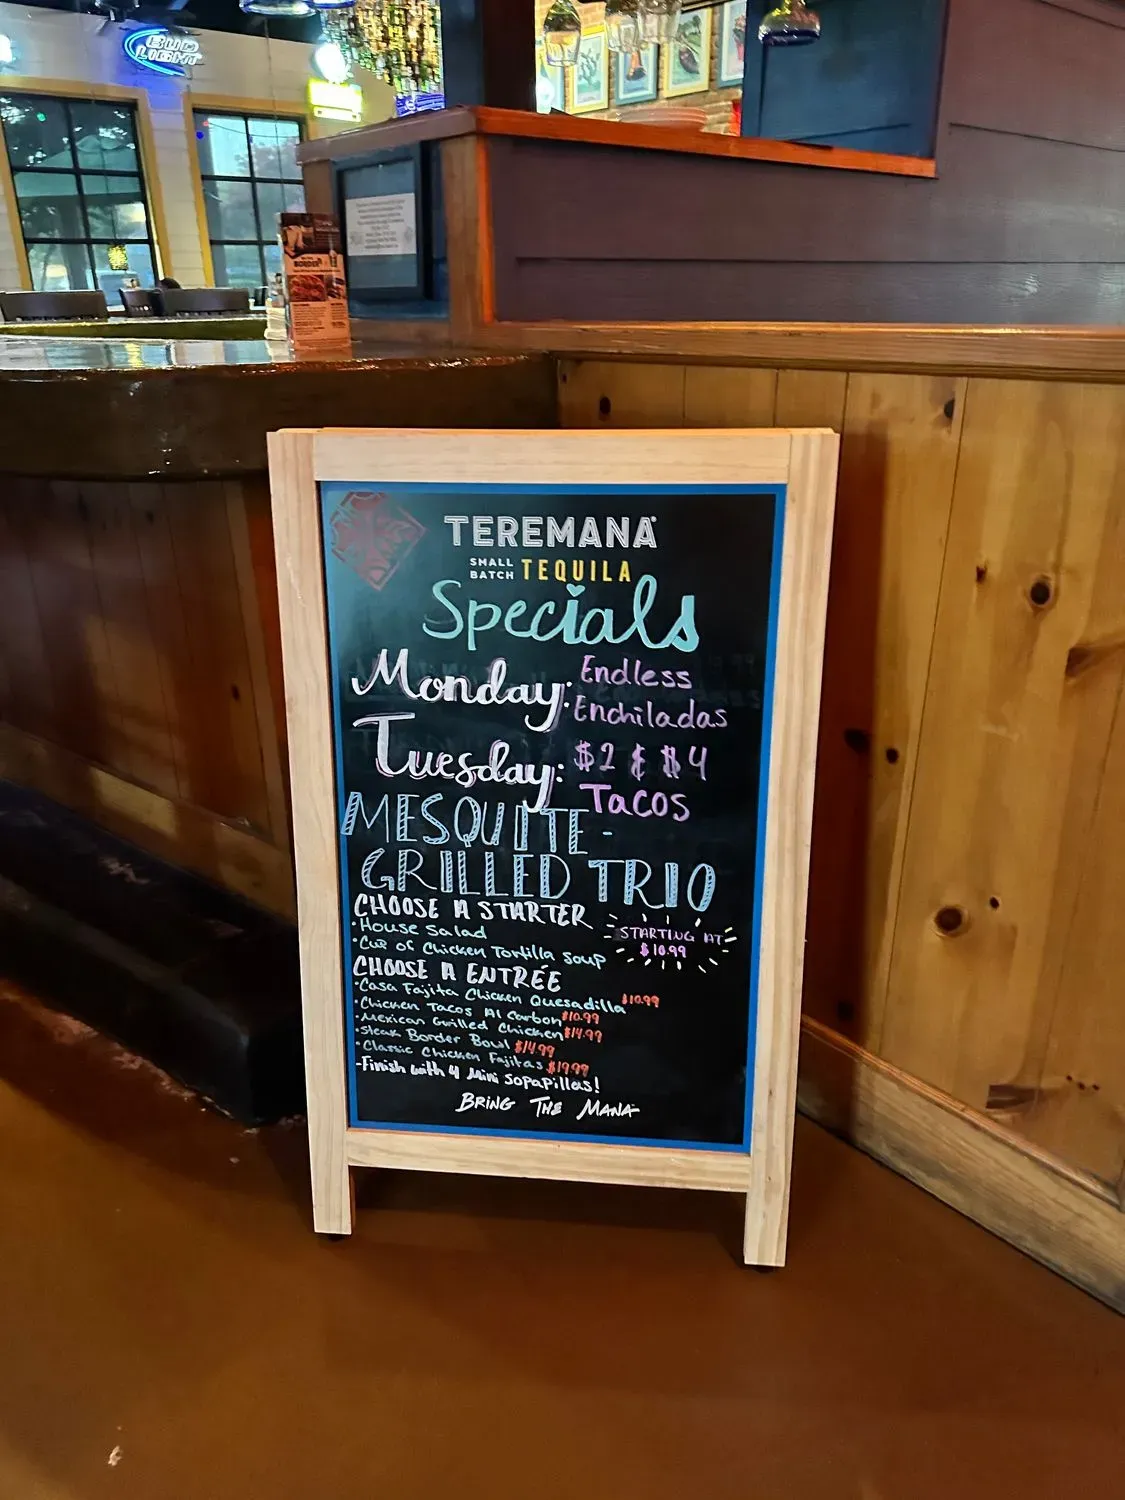 BUD
LIGHT
BORDER
TEREMANA
SMALL
BATCH TEQUILA
Specials
Monday: Endless
Enchiladas
Tuesday: $2 & $4
Tacos
MESQUITE-
GRILLED TRIO
CHOOSE A STARTER
STARTING AT
$10.99
•House Salad
•Cup of Chicken Tortilla Soup
CHOOSE A ENTRÉE
•Casa Fajita Chicken Quesadilla $10.99
•Chicken Tacos Al Carbon $10.99
•Mexican Grilled Chicken $14.99
•Steak Border Bowl $14.99
•Classic Chicken Fajitas $19.99
-Finish with 4 Mini Sopapillas!
BRING THE MANA